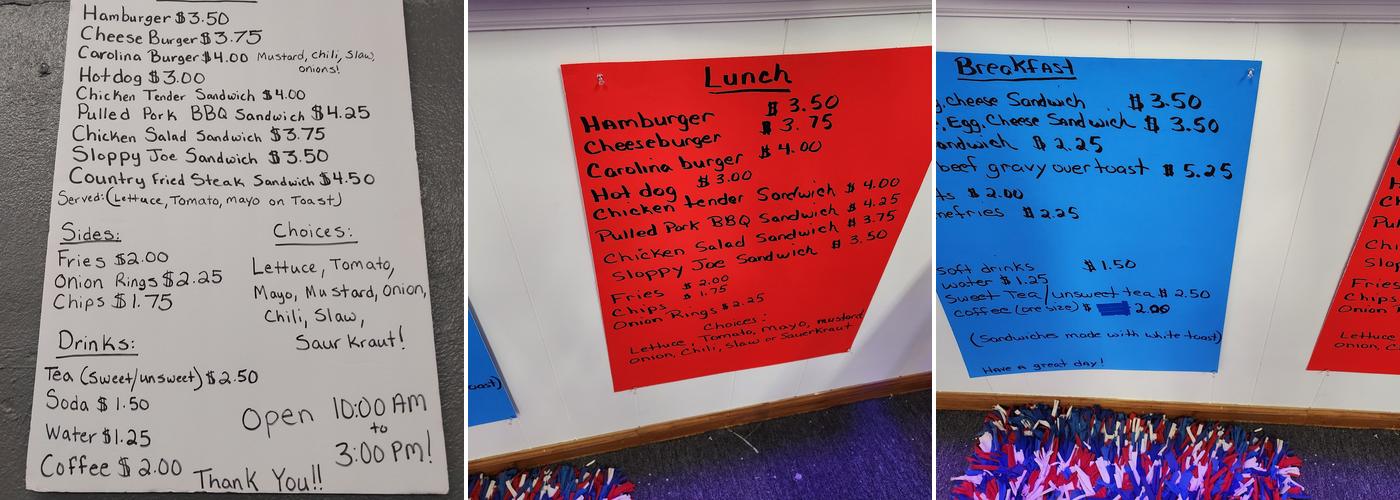 Hamburger $3.50
Cheese Burger $3.75
Carolina Burger $4.00 Mustard, Chili, Slaw, onions!
Hotdog $3.00
Chicken Tender Sandwich $4.00
Pulled Pork BBQ Sandwich $4.25
Chicken Salad Sandwich $3.75
Sloppy Joe Sandwich $3.50
Country Fried Steak Sandwich $4.50
Served: (Lettuce, Tomato, mayo on Toast)
Sides:
Fries $2.00
Onion Rings $2.25
Chips $1.75
Choices:
Lettuce, Tomato,
Mayo, Mustard, Onion,
Chili, Slaw,
Saur Kraut!
Drinks:
Tea (Sweet/unsweet) $2.50
Soda $1.50
Water $1.25
Coffee $2.00
Open 10:00 AM
to
3:00 PM!
Thank You!!
Lunch
Hamburger $3.50
Cheeseburger $3.75
Carolina burger $4.00
Hot dog $3.00
Chicken tender Sandwich $4.00
Pulled Pork BBQ Sandwich $4.25
Chicken Salad Sandwich $3.75
Sloppy Joe Sandwich $3.50
Fries $2.00
Chips $1.75
Onion Rings $2.25
Choices:
Lettuce, Tomato, mayo, mustard
Onion, Chili, Slaw or Sauerkraut
oast)
Breakfast
g, Cheese Sandwich $3.50
, Egg, Cheese Sandwich $3.50
andwich $2.25
beef gravy over toast $5.25
ts $2.00
mefries $2.25
soft drinks $1.50
water $1.25
Sweet Tea/unsweet tea $2.50
coffee (one size) $ 2.00
(Sandwiches made with white toast)
Have a great day!